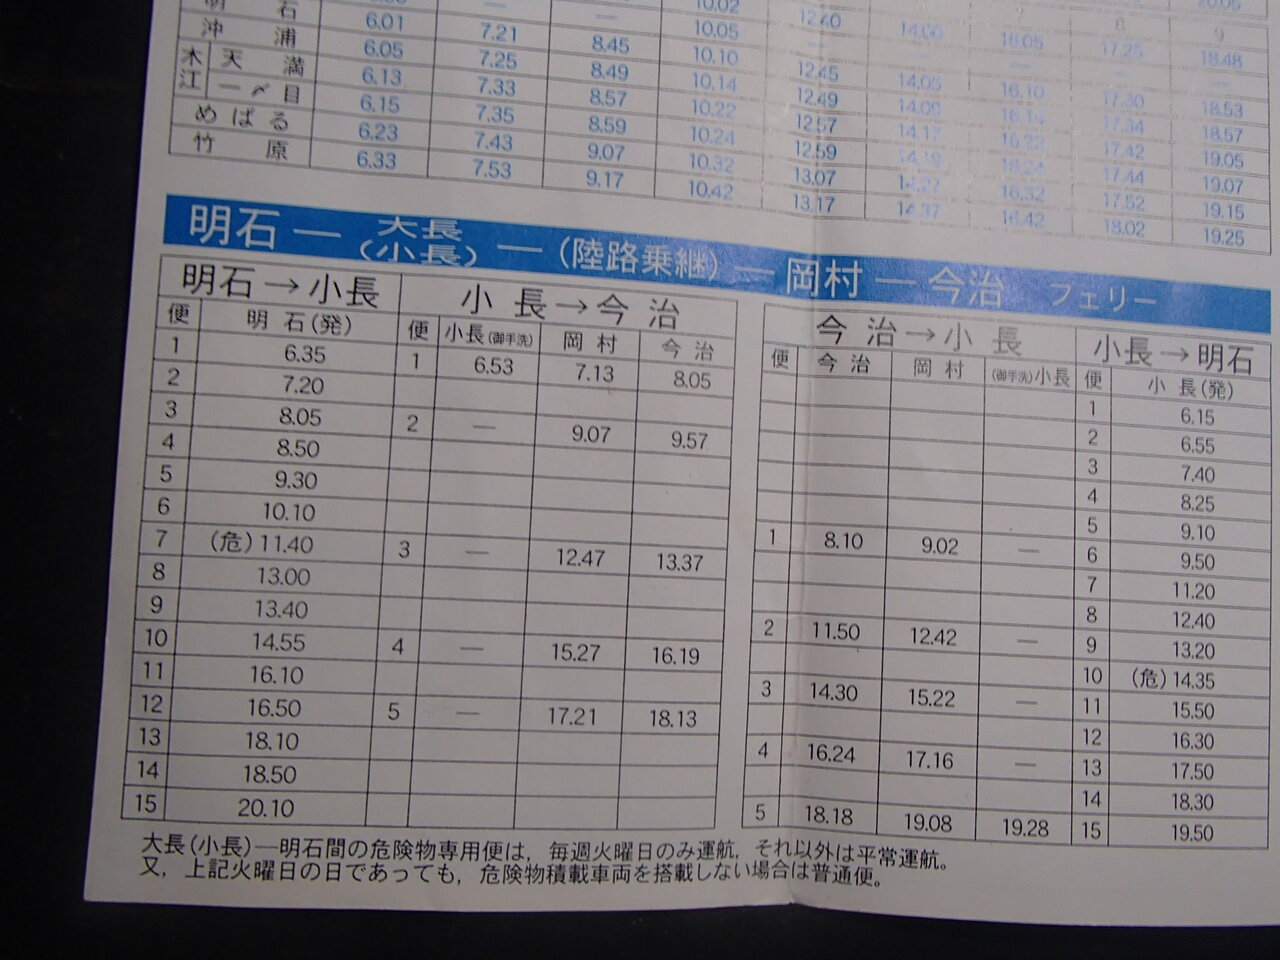 明 石 — — 10.02 12.40 14.00 16.05 17.25 18.48
沖 浦 6.01 7.21 8.45 10.05 — — — — —
木江 天 満 6.05 7.25 8.49 10.10 12.45 14.05 16.10 17.30 18.53
一〆目 6.13 7.33 8.57 10.14 12.49 14.09 16.14 17.34 18.57
めばる 6.15 7.35 8.59 10.22 12.57 14.17 16.22 17.42 19.05
竹 原 6.23 7.43 9.07 10.24 12.59 14.19 16.24 17.44 19.07
6.33 7.53 9.17 10.32 13.07 14.27 16.32 17.52 19.15
10.42 13.17 14.37 16.42 18.02 19.25
明石 — 大長(小長) — (陸路乗継) — 岡村 — 今治 フェリー
明石→小長
便 明 石(発)
1 6.35
2 7.20
3 8.05
4 8.50
5 9.30
6 10.10
7 (危)11.40
8 13.00
9 13.40
10 14.55
11 16.10
12 16.50
13 18.10
14 18.50
15 20.10
小 長→今 治
便 小長(御手洗) 岡 村 今 治
1 6.53 7.13 8.05
2 — 9.07 9.57
3 — 12.47 13.37
4 — 15.27 16.19
5 — 17.21 18.13
今 治→小 長
便 今 治 岡 村 (御手洗)小長
1 8.10 9.02 —
2 11.50 12.42 —
3 14.30 15.22 —
4 16.24 17.16 —
5 18.18 19.08 19.28
小長→明石
便 小 長(発)
1 6.15
2 6.55
3 7.40
4 8.25
5 9.10
6 9.50
7 11.20
8 12.40
9 13.20
10 (危)14.35
11 15.50
12 16.30
13 17.50
14 18.30
15 19.50
大長(小長)—明石間の危険物専用便は，毎週火曜日のみ運航，それ以外は平常運航。
又，上記火曜日の日であっても，危険物積載車両を搭載しない場合は普通便。